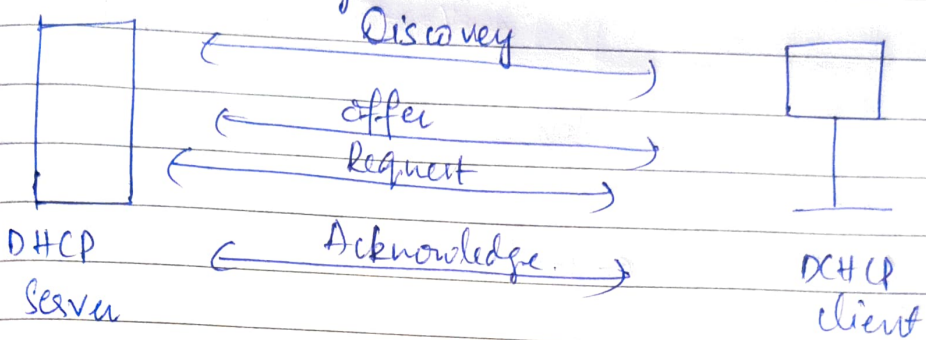 Discovey
offer
Request
Acknowledge.
DHCP
Server
DCHCP
client